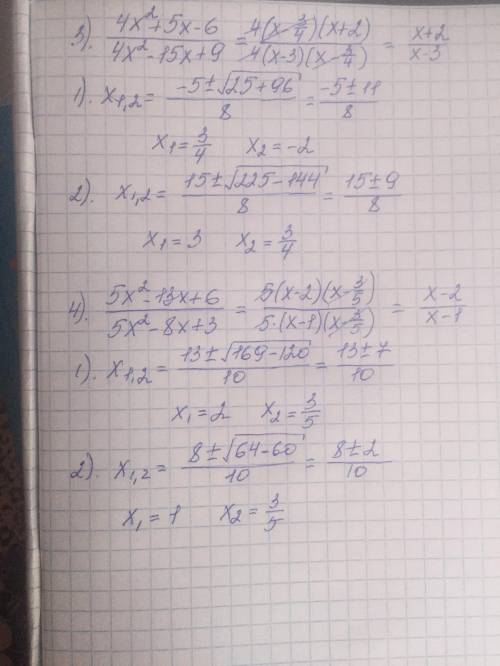 3). (4x²+5x-6)/(4x²-15x+9) = 4(x-3/4)(x+2)/4(x-3)(x-3/4) = (x+2)/(x-3)
1). x₁,₂ = (-5±√25+96)/8 = (-5±11)/8
x₁ = 3/4 x₂ = -2
2). x₁,₂ = (15±√225-144)/8 = (15±9)/8
x₁ = 3 x₂ = 3/4
4). (5x²-13x+6)/(5x²-8x+3) = 5(x-2)(x-3/5)/5·(x-1)(x-3/5) = (x-2)/(x-1)
1). x₁,₂ = (13±√169-120)/10 = (13±7)/10
x₁ = 2 x₂ = 3/5
2). x₁,₂ = (8±√64-60)/10 = (8±2)/10
x₁ = 1 x₂ = 3/5